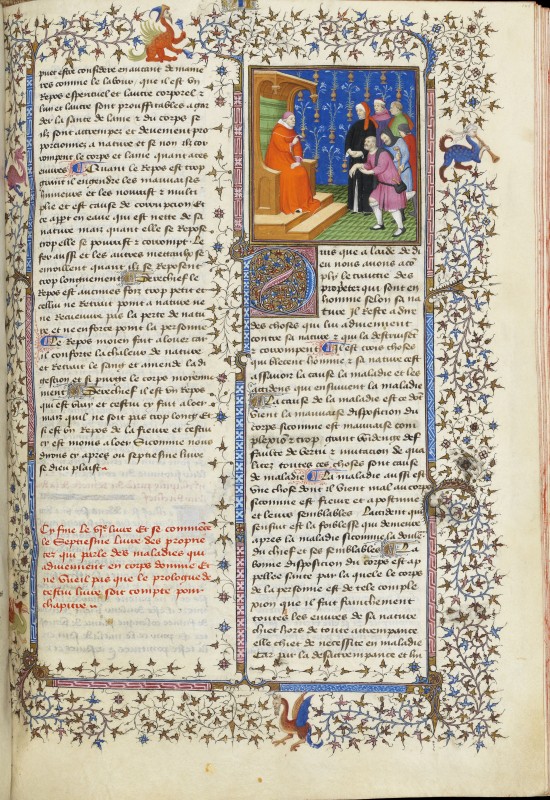 puet estre considere en autant de manie
res comme le labour, que il est vn
Repos espirituel et lautre corporel &
lun et lautre sont prouffitables a gar
der la sante de lame & du corps se
ilz sont attrempez et deuement pro
porcionnez a nature et se non ilz cor
rompent le corps et lame quant a ses
euures Quant le Repos est trop
grant il engendre les mauuaises
humeurs et les nourrist & multi
plie et est cause de corrupcion Et
ce appt en eaue qui est nette de sa
nature mais quant elle se Repose
trop elle se pourrist & corrompt. Le
fer aussi et les autres metaulx se
enroillent quant ilz se Reposent
trop longuement Derechief le
Repos est aucunes foiz trop petit et
cellui ne Retient point a nature ne
ne Recueuure pas la perte de natu
re et ne enforce point la personne
Le Repos moien fait a louer car
il conforte la chaleur de nature
et Retrait le sang et amende la di
gestion et si purge le corps moienne
ment Derechief il est vn Repos
qui est vray et cestui cy fait a loer
mais quil ne soit pas trop long Et
si est vn Repos de la fieure et cestui
cy est moins a loer Si comme nous
dirons cy apres ou septiesme liure
se dieu plaist
Cy fine le vje liure Et se commence
le Septiesme liure des proprie
tez qui parle des maladies qui
aduiennent en corps domme Et
ne vueil pas que le prologue de
cestui liure soit compte pour
chapitre
Puis que a laide de di
eu nous auons acom
pli le traictie des
proprietez qui sont en
lhomme selon sa na
ture Il reste a dire
des choses qui lui aduiennent
contre sa nature & qui la destruisent
& corrompent Il est trois choses
qui blecent lhomme & sa nature cest
assauoir la cause la maladie et les
accidens qui ensuiuent la maladie
La cause de la maladie est ce dont
vient la mauuaise disposicion du
corps si comme est mauuaise com
plexion & trop grant vuidenge def
faulte de vertu & mutacion de qua
litez toutes ces choses sont cause
de maladie La maladie aussi est
vne chose dont il vient mal au corps
si comme est fieure et apostume
et leurs semblables Laccident qui
sensuit est la foiblesse qui demeure
apres la maladie si comme la douleur
du chief et ses semblables La
bonne disposicion du corps est ap
pellee sante par la quele le corps
de la personne est de tele comple
xion que il fait franchement
toutes les euures de sa nature
chiet hors de toute attrempance
elle chiet de necessite en maladie
Car par la desattrempance et lin